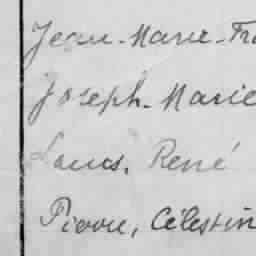 Jean-Marie-Fra
Joseph-Marie
Louis, René
Pierre, Célestin